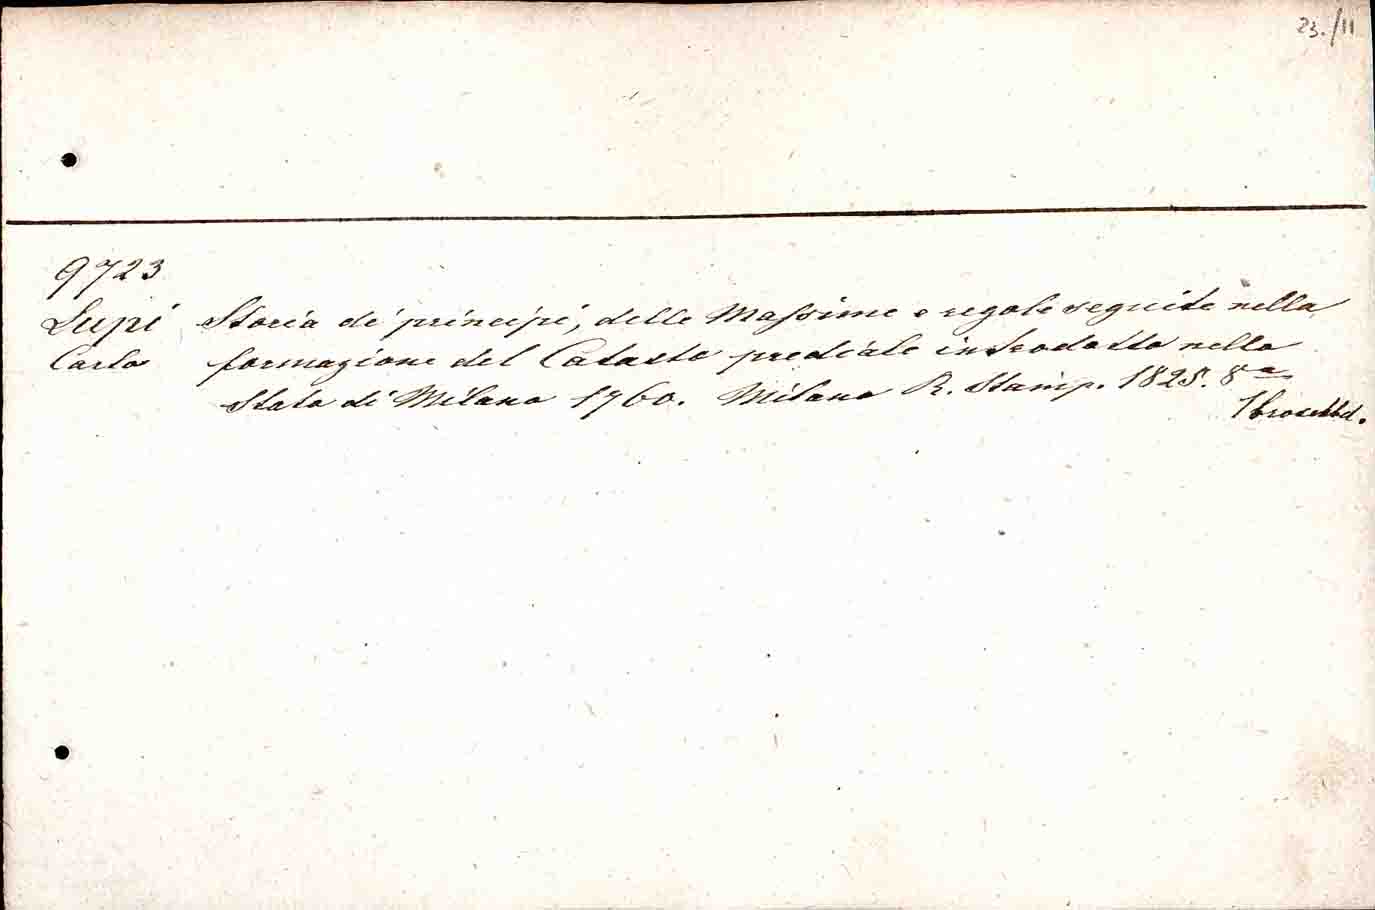 23./11
9723
Lupi Storia de' principi, delle Massime e regole seguite nella
Carlo formazione del Catasto prediale introdotto nello
Stato di Milano 1760. Milano R. Stamp. 1825. 8°
1 broschbd.